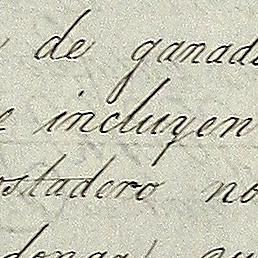 de ganad
e incluyen
ostadero no